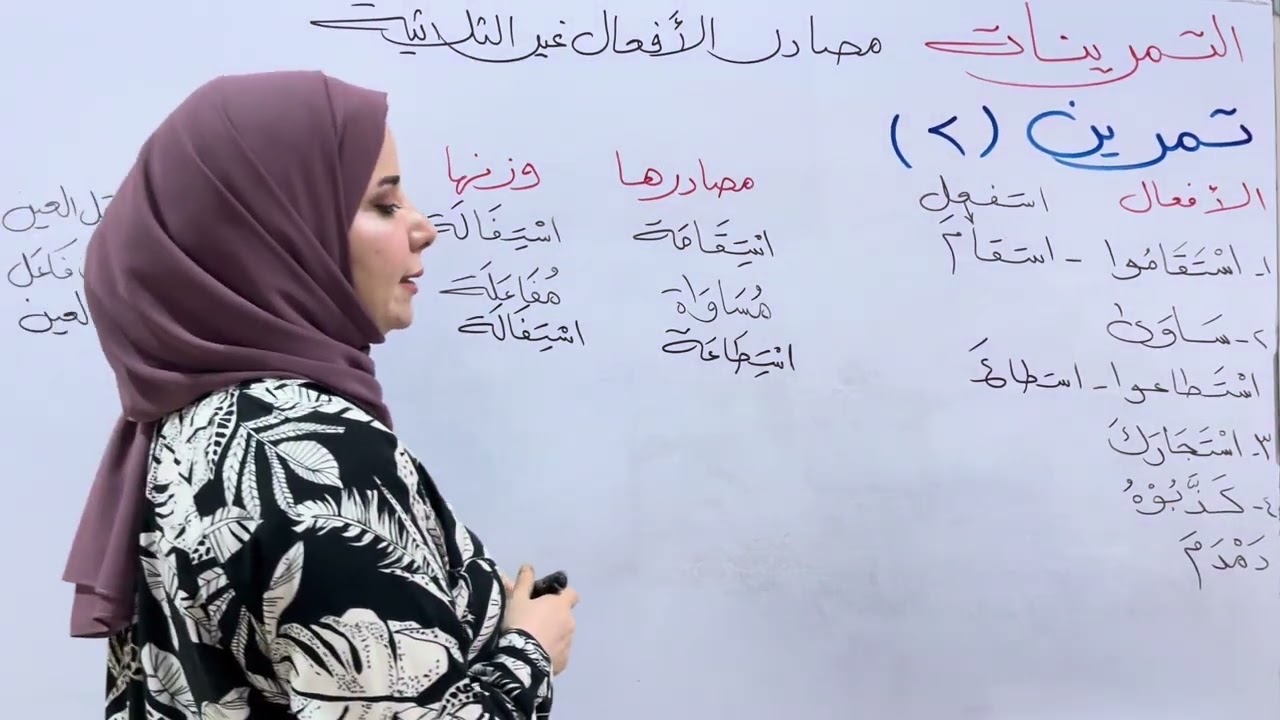 التمرينات مصادر الأفعال غير الثلاثية
تمرين (٢)
الأفعال استفعل مصادرها وزنها
١- اسْتَقَامُوا - استقامَ اسْتِقَامَة اسْتِفَالَة العين
٢- سَاوَىٰ مُسَاوَاة مُفَاعَلَة فَاعَل
اسْتَطاعوا - استطاعَ اسْتِطَاعَة اسْتِفَالَة العين
٣- اسْتَجَارَكَ
٤- كَذَّبُوْهُ
دَمْدَمَ